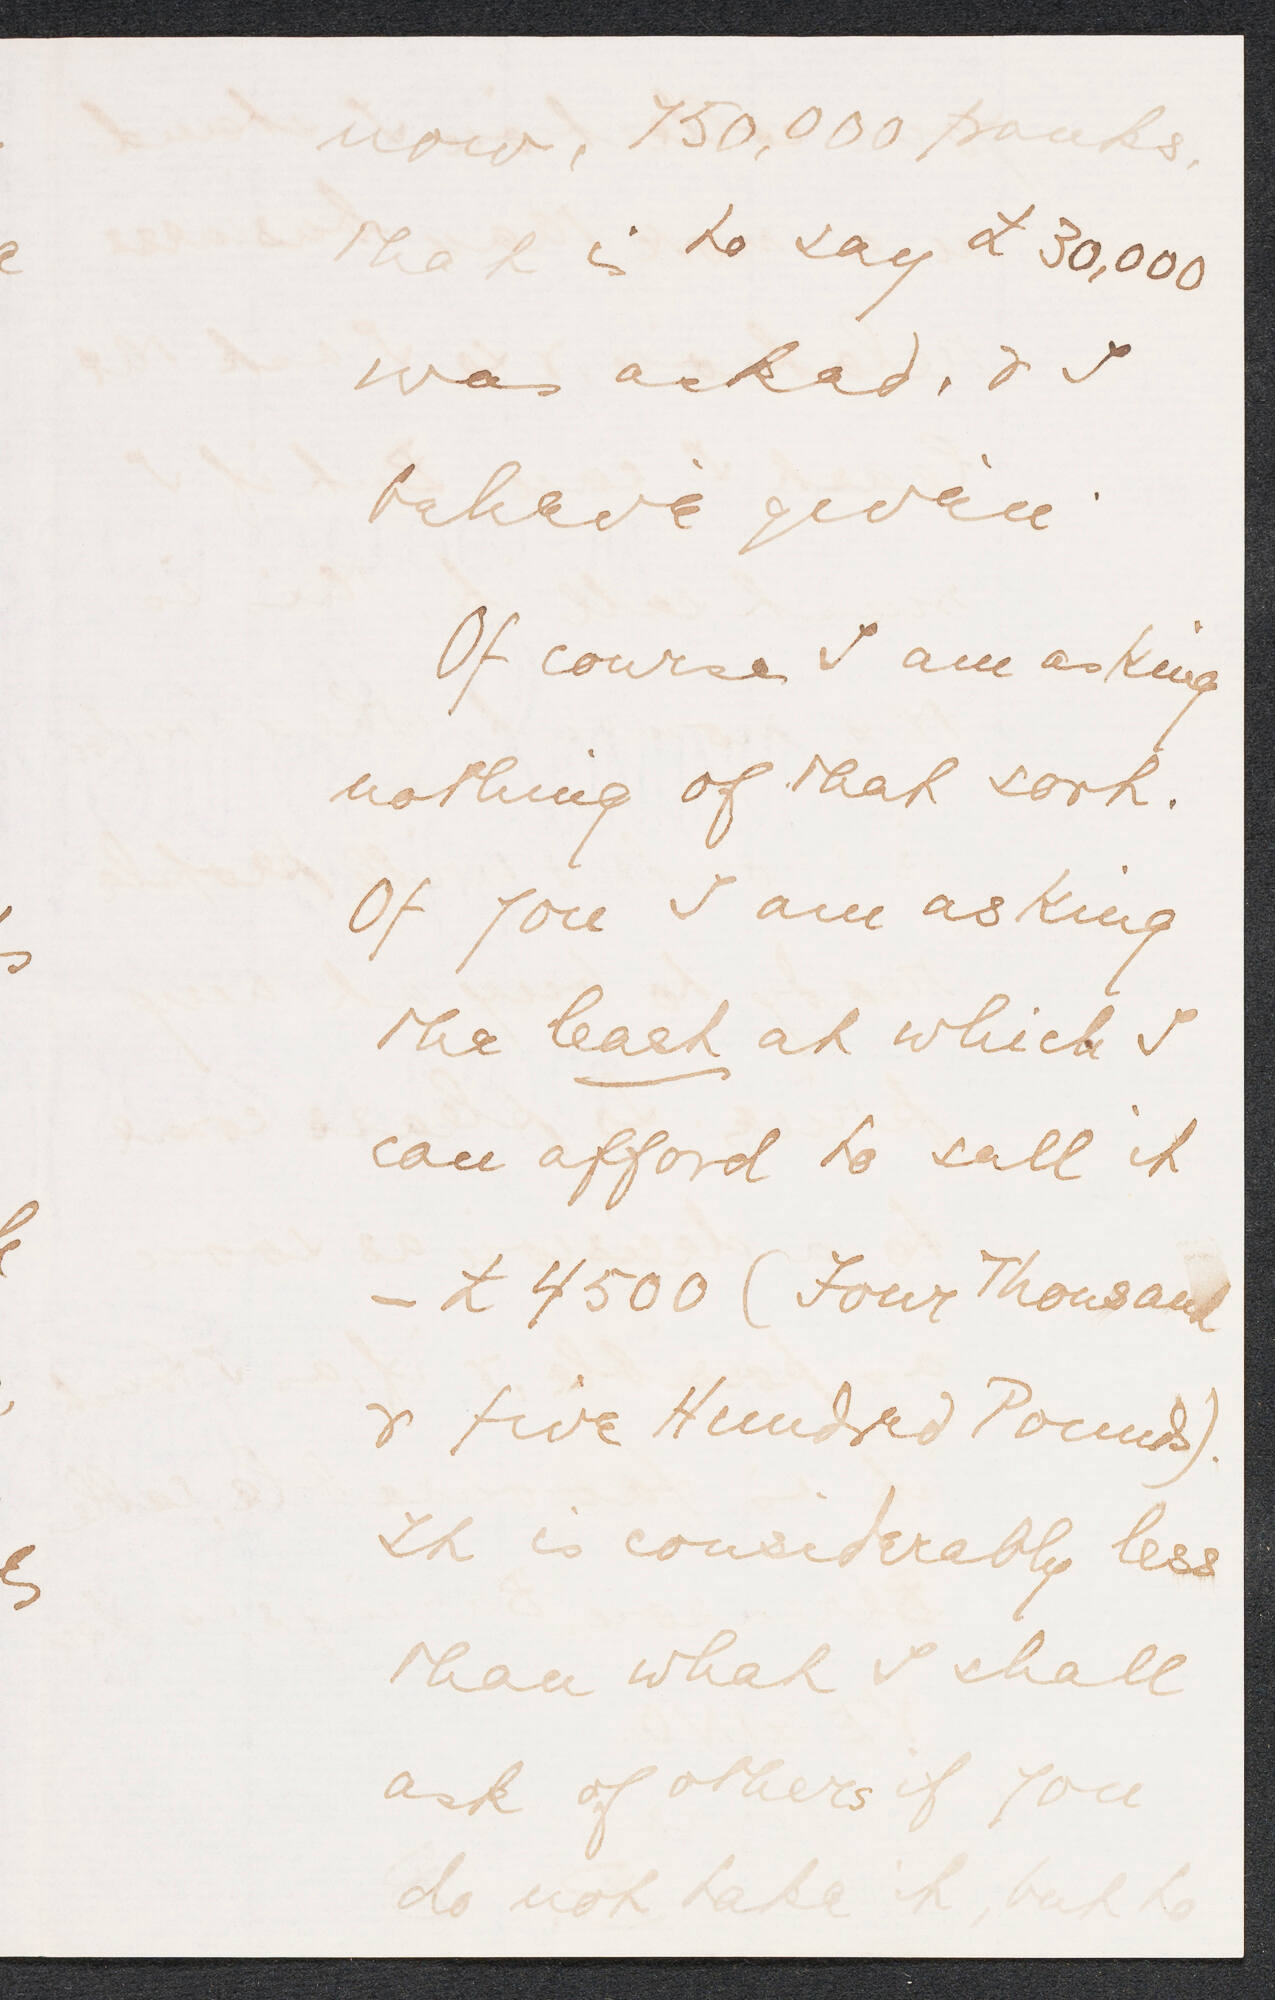 now, 750,000 franks,
that is to say £30,000
was asked, & I
believe given.
Of course I am asking
nothing of that sort.
Of you I am asking
the least at which I
can afford to sell it
– £4500 (Four Thousand
& five Hundred Pounds).
It is considerably less
than what I shall
ask of others if you
do not take it, but to